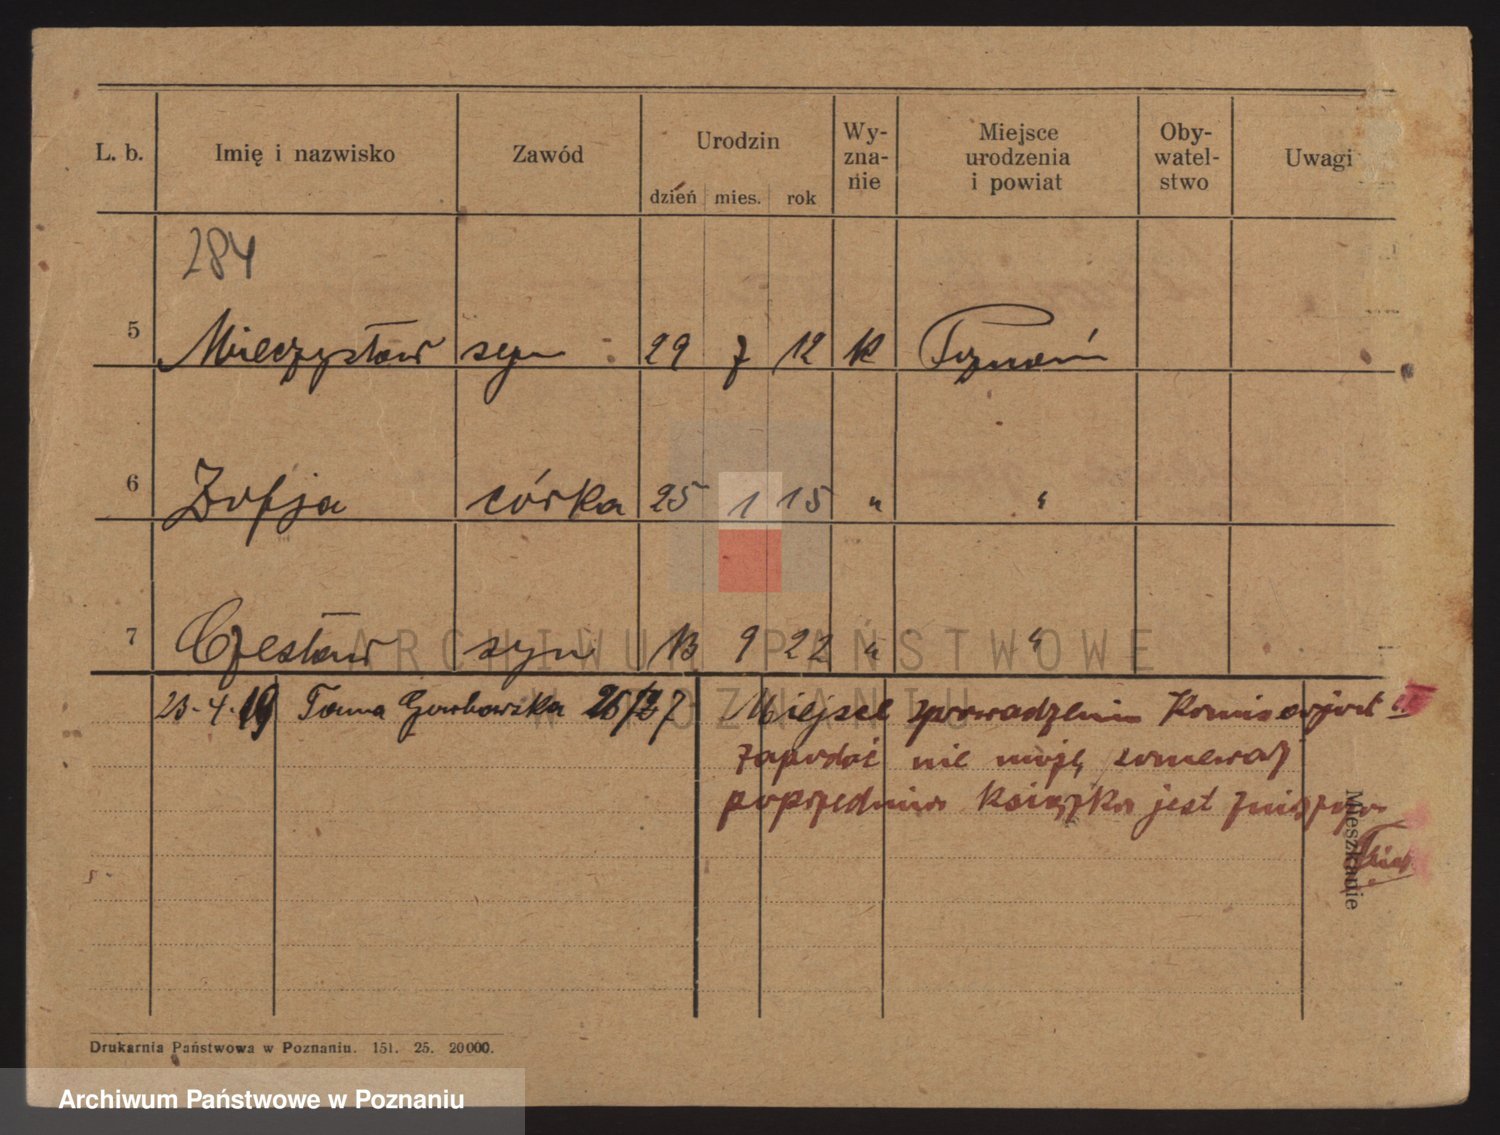 L. b. Imię i nazwisko Zawód Urodzin Wy-zna-nie Miejsce urodzenia i powiat Oby-watel-stwo Uwagi
dzień mies. rok
284
5 Mieczysław syn 29 7 12 K Poznań
6 Zofja córka 25 1 15 " "
7 Czesław syn 13 9 22 " "
ARCHIWUM PAŃSTWOWE
W POZNANIU
23.4.19 Tama Garbowska 26/27 Miejsce sprowadzenia
zapodać nie mogę ponieważ
poprzednia książka jest
Mieszkanie
Drukarnia Państwowa w Poznaniu. 151. 25. 20000.
Archiwum Państwowe w Poznaniu